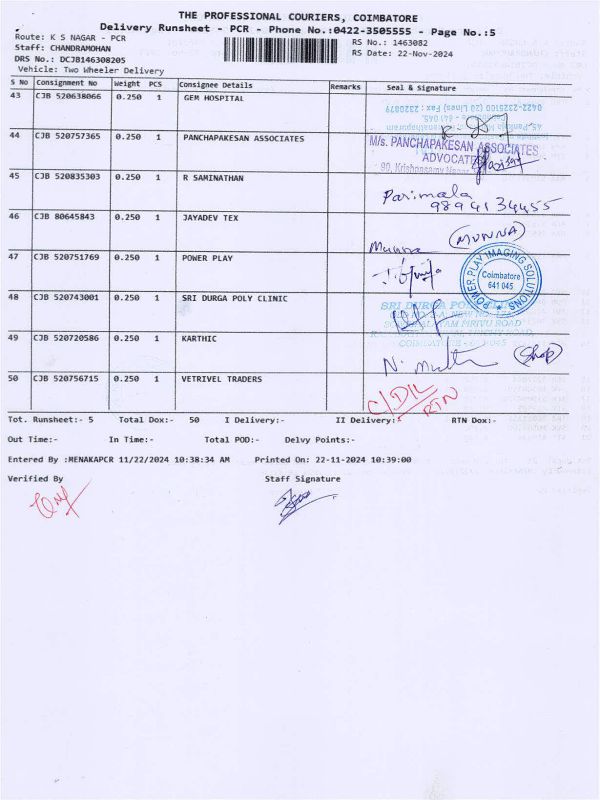 THE PROFESSIONAL COURIERS, COIMBATORE
Delivery Runsheet - PCR - Phone No.:0422-3505555 - Page No.:5
Route: K S NAGAR - PCR RS No.: 1463082
Staff: CHANDRAMOHAN RS Date: 22-Nov-2024
DRS No.: DCJB146308205
Vehicle: Two Wheeler Delivery
S No Consignment No Weight PCS Consignee Details Remarks Seal & Signature
43 CJB 520638066 0.250 1 GEM HOSPITAL
0422-2325100 (20 Lines) Fax : 2320879
44 CJB 520757365 0.250 1 PANCHAPAKESAN ASSOCIATES
M/s. PANCHAPAKESAN ASSOCIATES
ADVOCATES
90, Krishnasamy Nagar
45 CJB 520835303 0.250 1 R SAMINATHAN
Parimala
9894134455
46 CJB 80645843 0.250 1 JAYADEV TEX
Munna (MUNNA)
47 CJB 520751769 0.250 1 POWER PLAY
POWER PLAY IMAGING SOLUTIONS
Coimbatore
641 045
48 CJB 520743001 0.250 1 SRI DURGA POLY CLINIC
SRI DURGA POLY
49 CJB 520720586 0.250 1 KARTHIC
(Shop)
50 CJB 520756715 0.250 1 VETRIVEL TRADERS
C/DIL
RTN
Tot. Runsheet:- 5 Total Dox:- 50 I Delivery:- II Delivery:- RTN Dox:-
Out Time:- In Time:- Total POD:- Delvy Points:-
Entered By :MENAKAPCR 11/22/2024 10:38:34 AM Printed On: 22-11-2024 10:39:00
Verified By Staff Signature